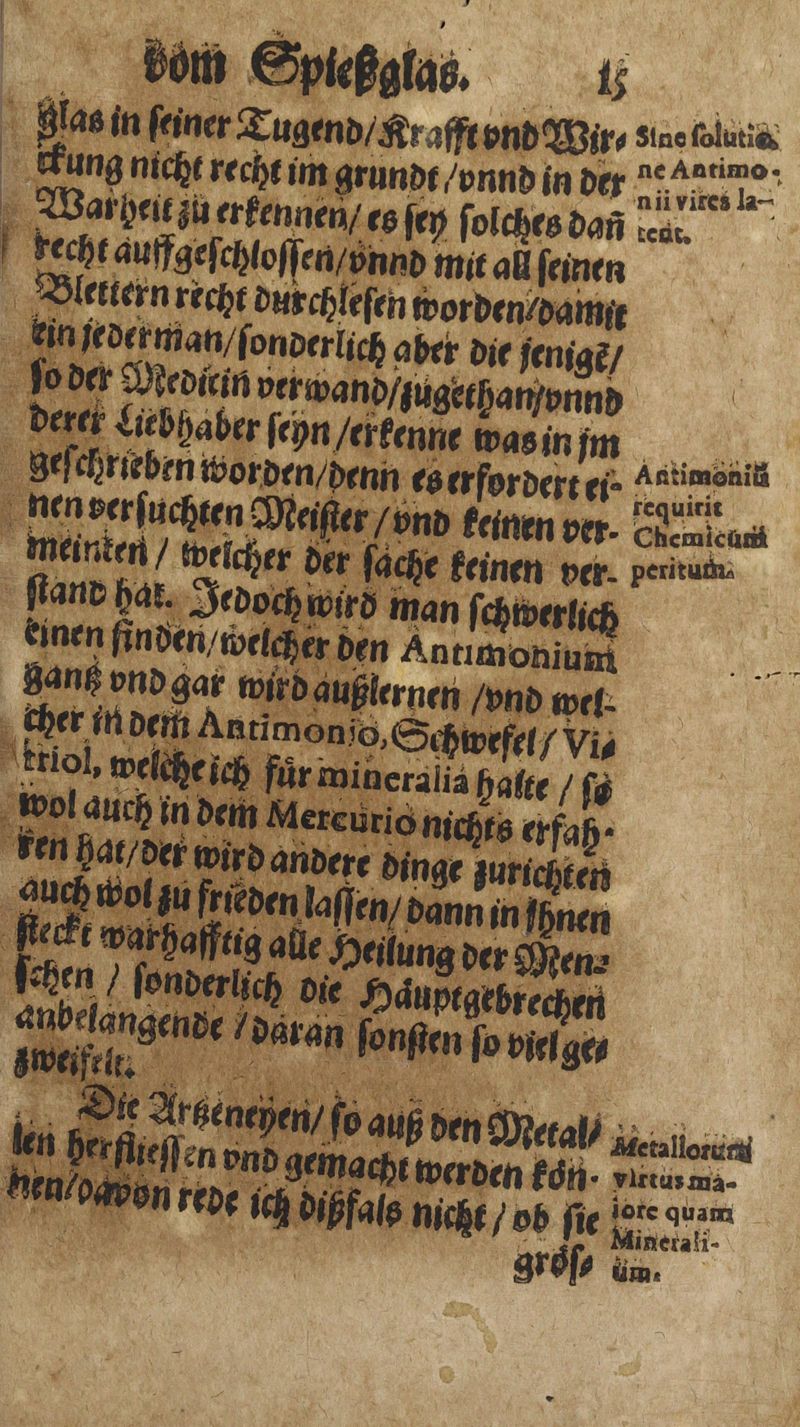 vom Spießglas. 15
glas in seiner Tugend/Krafft vnd Wir⸗
ckung nicht recht im grundt/vnnd in der
Warheit zu erkennen/ es sey solches dañ
recht auffgeschlossen/vnnd mit all seinen
Blettern recht durchlesen worden/damit
ein jederman/sonderlich aber die jenigē/
so der Medicin verwand/zugethan/vnnd
derer Liebhaber seyn/erkenne was in jm
geschrieben worden/denn es erfordert ei-
nen versuchten Meister/vnd keinen ver-
meinten/ welcher der sache keinen ver-
stand hat. Jedoch wird man schwerlich
einen finden/welcher den Antimonium
gantz vnd gar wird außlernen/vnd wel-
cher in dem Antimonio, Schwefel/ Vi⸗
triol, welche ich für mineralia halte/ so
wol auch in dem Mercurio nichts erfah-
ren hat/der wird andere dinge zurichten
auch wol zu frieden lassen/ dann in Ihnen
steckt warhafftig alle Heilung der Men⸗
schen/ sonderlich die Häuptgebrechen
anbelangende/daran sonsten so viel ge⸗
zweifelt.
Die Artzeneyen/ so auß den Metal⸗
len herfliessen vnd gemacht werden kön-
nen/davon rede ich dißfals nicht/ ob sie
grös⸗
Sine solutio⸗
ne Antimo-
nii vires la-
tent.
Antimoniū
requirit
Chemicum
peritum.
Metallorum
virtus ma-
iore quam
Minerali-
um.